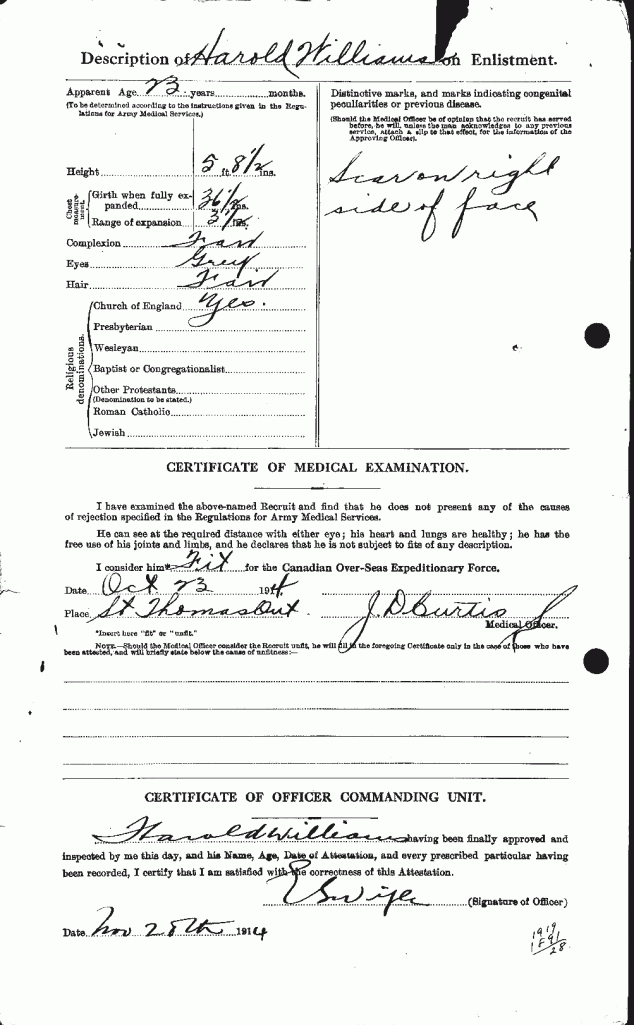 Description of Harold Williams on Enlistment.
Apparent Age 23 years months.
(To be determined according to the instructions given in the Regu-
lations for Army Medical Services.)
Height 5 ft. 8 1/2 ins.
Chest measure-
ment.
Girth when fully ex-
panded 36 1/2 ins.
Range of expansion 3 1/2 ins.
Complexion Fair
Eyes Grey
Hair Fair
Religious
denominations.
Church of England Yes.
Presbyterian
Wesleyan
Baptist or Congregationalist
Other Protestants
(Denomination to be stated.)
Roman Catholic
Jewish
Distinctive marks, and marks indicating congenital
peculiarities or previous disease.
(Should the Medical Officer be of opinion that the recruit has served
before, he will, unless the man acknowledges to any previous
service, attach a slip to that effect, for the information of the
Approving Officer).
Scar on right
side of face
CERTIFICATE OF MEDICAL EXAMINATION.
I have examined the above-named Recruit and find that he does not present any of the causes
of rejection specified in the Regulations for Army Medical Services.
He can see at the required distance with either eye; his heart and lungs are healthy; he has the
free use of his joints and limbs, and he declares that he is not subject to fits of any description.
I consider him* Fit for the Canadian Over-Seas Expeditionary Force.
Date Oct 23 1914.
Place St Thomas Ont. J. D Curtis
Medical Officer.
*Insert here "fit" or "unfit."
NOTE.—Should the Medical Officer consider the Recruit unfit, he will fill in the foregoing Certificate only in the case of those who have
been attested, and will briefly state below the cause of unfitness:—
CERTIFICATE OF OFFICER COMMANDING UNIT.
Harold Williams having been finally approved and
inspected by me this day, and his Name, Age, Date of Attestation, and every prescribed particular having
been recorded, I certify that I am satisfied with the correctness of this Attestation.
(Signature of Officer)
Date Nov 28th 1914
1919
1F91
/28